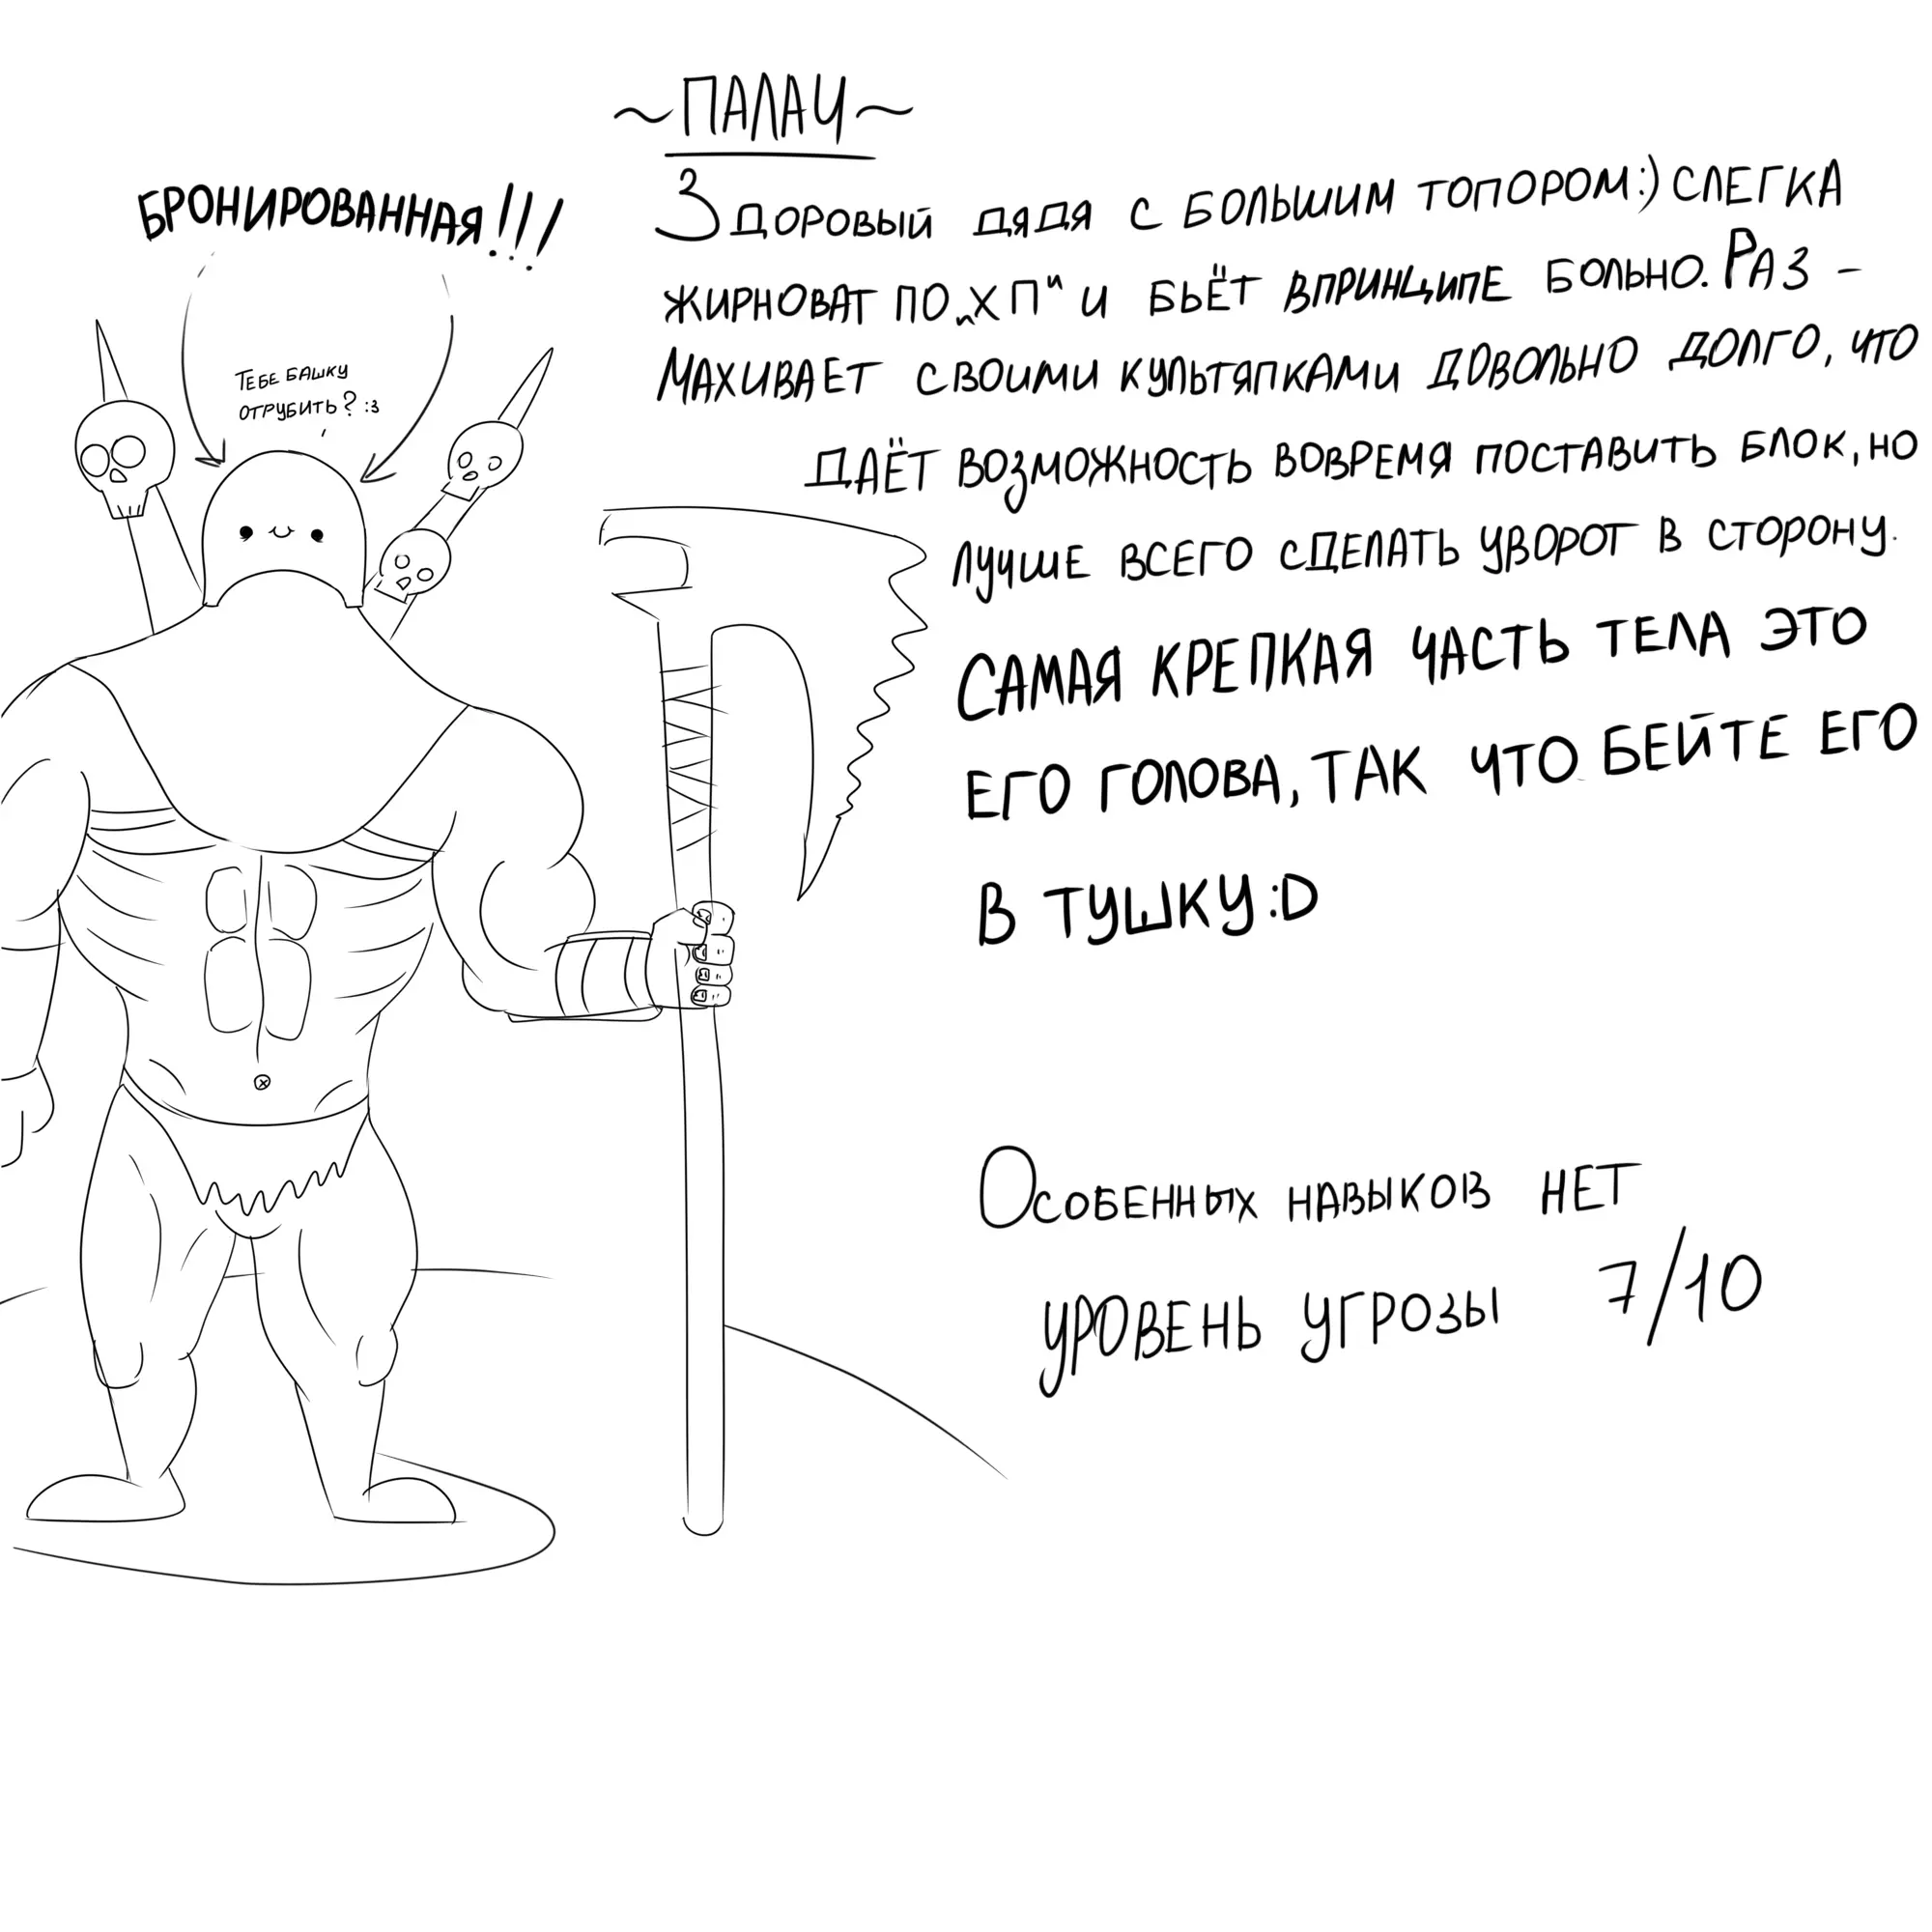 ~ПАЛАЧ~
БРОНИРОВАННАЯ!!!
ТЕБЕ БАШКУ
ОТРУБИТЬ? :з
ЗДОРОВЫЙ ДЯДЯ С БОЛЬШИМ ТОПОРОМ:) СЛЕГКА
ЖИРНОВАТ ПО „ХП“ И БЬЁТ ВПРИНЦИПЕ БОЛЬНО. РАЗ -
МАХИВАЕТ СВОИМИ КУЛЬТЯПКАМИ ДОВОЛЬНО ДОЛГО, ЧТО
ДАЁТ ВОЗМОЖНОСТЬ ВОВРЕМЯ ПОСТАВИТЬ БЛОК, НО
ЛУЧШЕ ВСЕГО СДЕЛАТЬ УВОРОТ В СТОРОНУ.
САМАЯ КРЕПКАЯ ЧАСТЬ ТЕЛА ЭТО
ЕГО ГОЛОВА, ТАК ЧТО БЕЙТЕ ЕГО
В ТУШКУ :D
ОСОБЕННЫХ НАВЫКОВ НЕТ
УРОВЕНЬ УГРОЗЫ 7/10